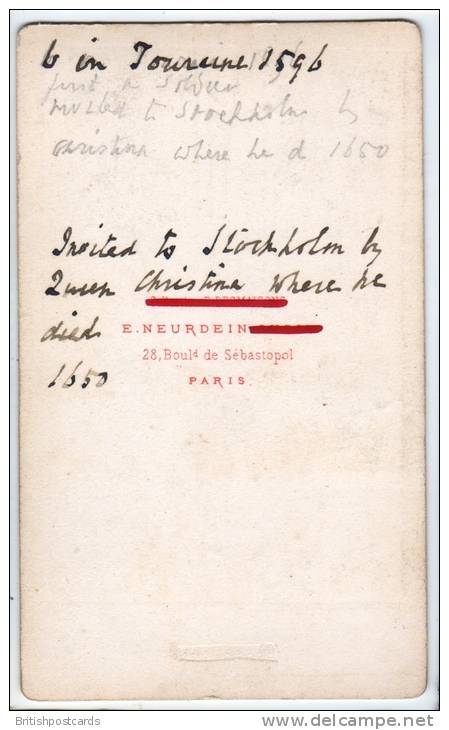 b in Touraine 1596
first a Soldier
invited to Stockholm by
Christina where he d 1650
Invited to Stockholm by
Queen Christina where he
died
1650
E. NEURDEIN
28, Bould de Sébastopol
PARIS.
Britishpostcards
delcampe.net